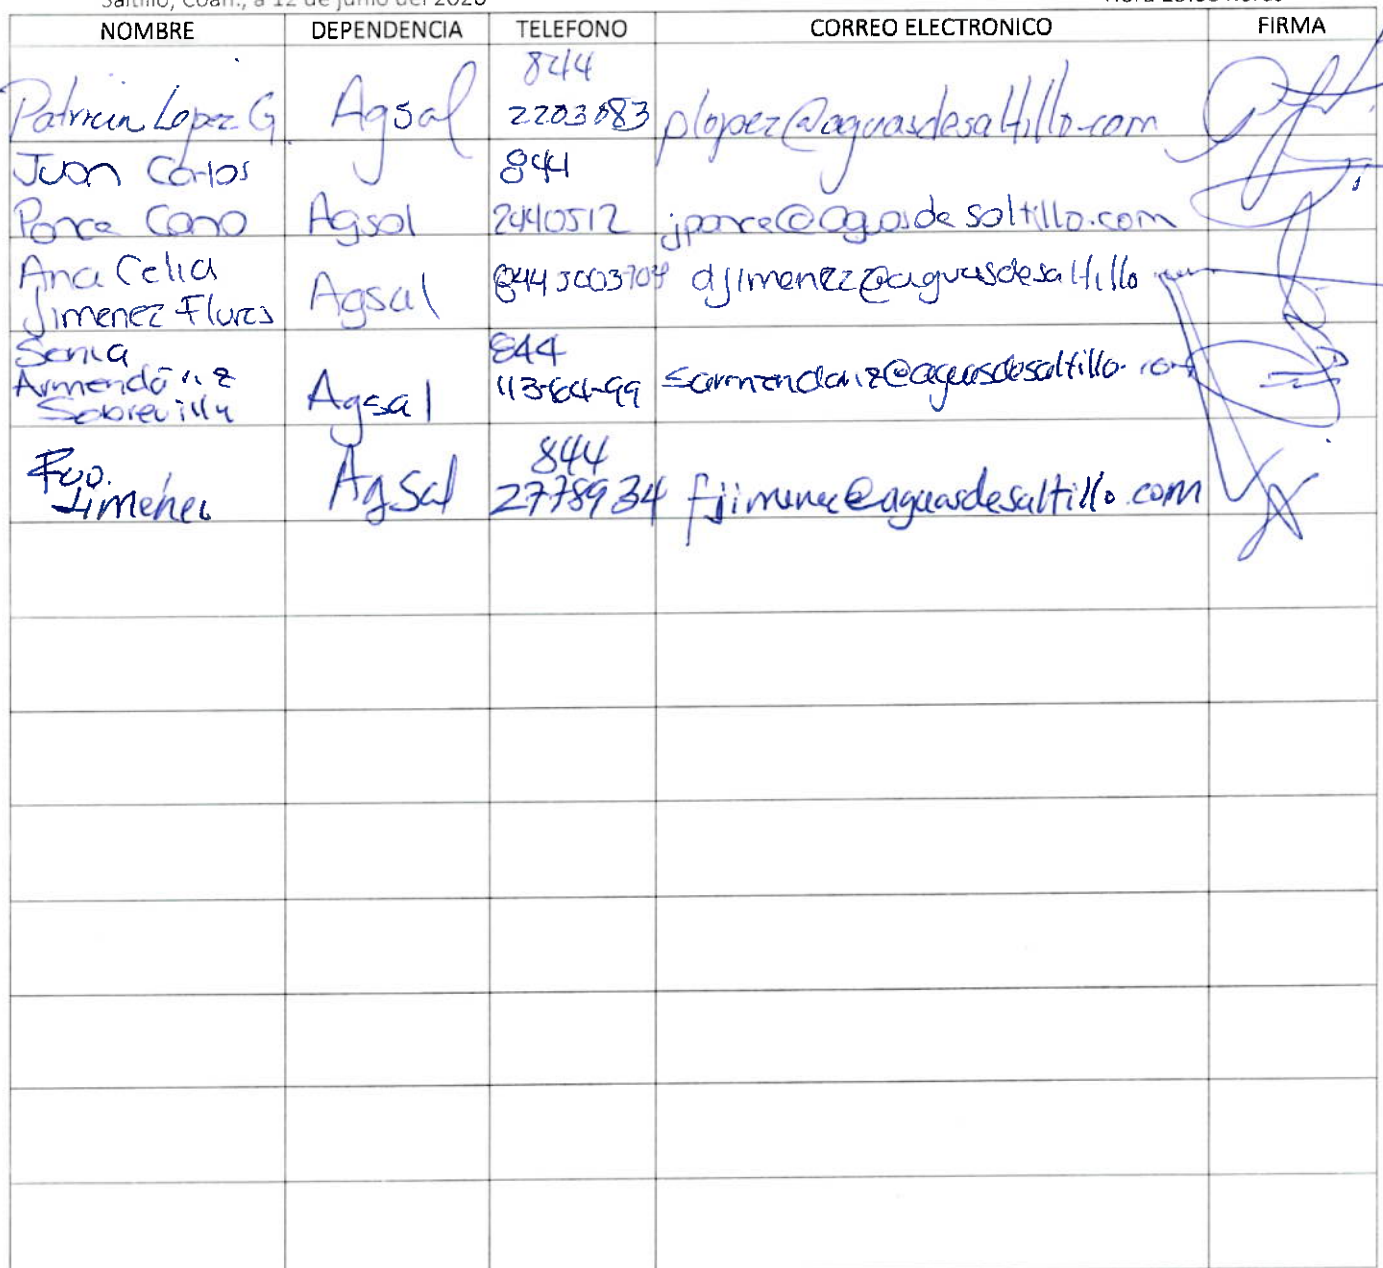 Saltillo, Coah., a 12 de junio del 2020
NOMBRE DEPENDENCIA TELEFONO CORREO ELECTRONICO FIRMA
Patricia Lopez G. Agsal 844 2203083 plopez@aguasdesaltillo.com
Juan Carlos
Ponce Cano Agsal 844 2440512 jponce@aguasdesaltillo.com
Ana Celia
Jimenez Flores Agsal ajimenez@aguasdesaltillo
Sonia
Armendáriz
Sobrevilla Agsal 844 113-64-99 sarmendariz@aguasdesaltillo.com
Fco.
Jimenez Agsal 844 2778934 fjimenez@aguasdesaltillo.com